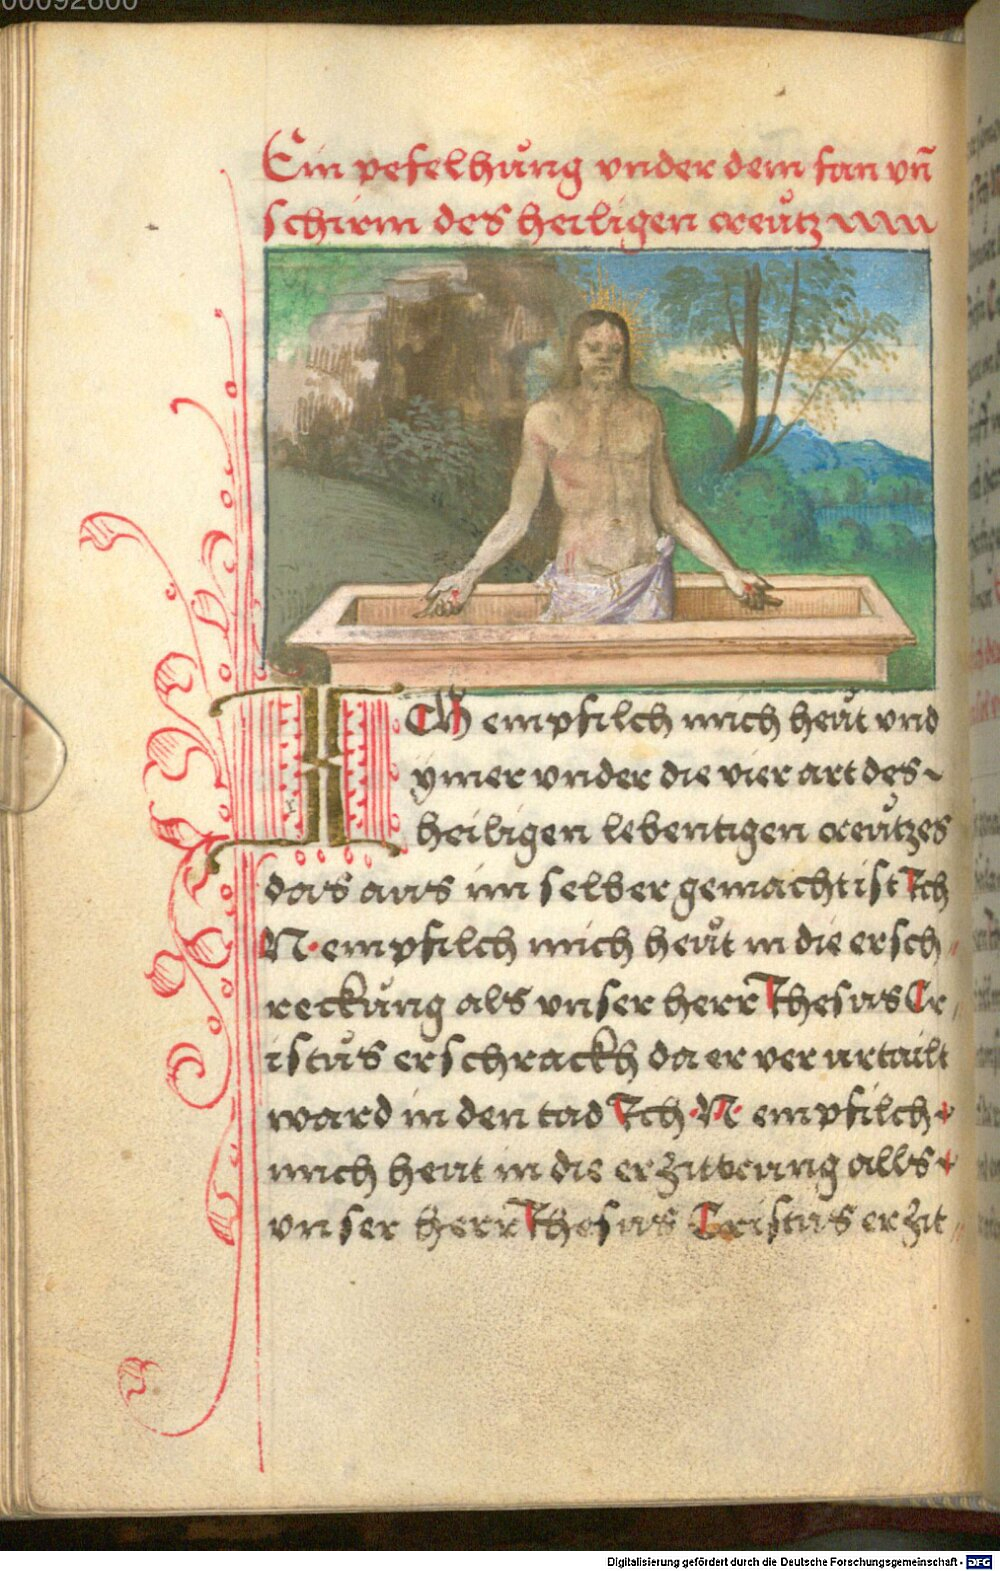 00092600
Ein pefelhůng vnder dem fan vn̄
schirm des heiligen creůtz
ICH empfilch mich heůt vnd
ymer vnder die vier art des
heiligen lebentigen creůtzes
das aus im selber gemacht ist Ich
N. empfilch mich heůt in die ersch
reckůng als vnser herr Ihesus Cr
istůs erschrackh da er verurtailt
ward in den tad Ich .N. empfilch
mich heut in die erzitterung alls
vnser herr Ihesus Cristůs erzit
Digitalisierung gefördert durch die Deutsche Forschungsgemeinschaft - DFG